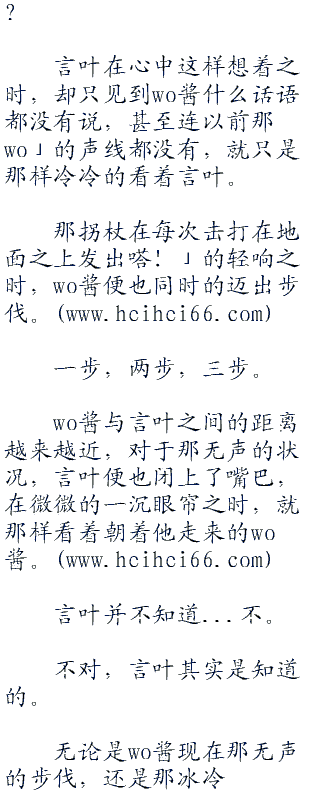 ?
言叶在心中这样想着之
时，却只见到wo酱什么话语
都没有说，甚至连以前那
wo」的声线都没有，就只是
那样冷冷的看着言叶。
那拐杖在每次击打在地
面之上发出嗒！」的轻响之
时，wo酱便也同时的迈出步
伐。(www.hcihci66.com)
一步，两步，三步。
wo酱与言叶之间的距离
越来越近，对于那无声的状
况，言叶便也闭上了嘴巴，
在微微的一沉眼帘之时，就
那样看着朝着他走来的wo
酱。(www.hcihci66.com)
言叶并不知道...不。
不对，言叶其实是知道
的。
无论是wo酱现在那无声
的步伐，还是那冰冷